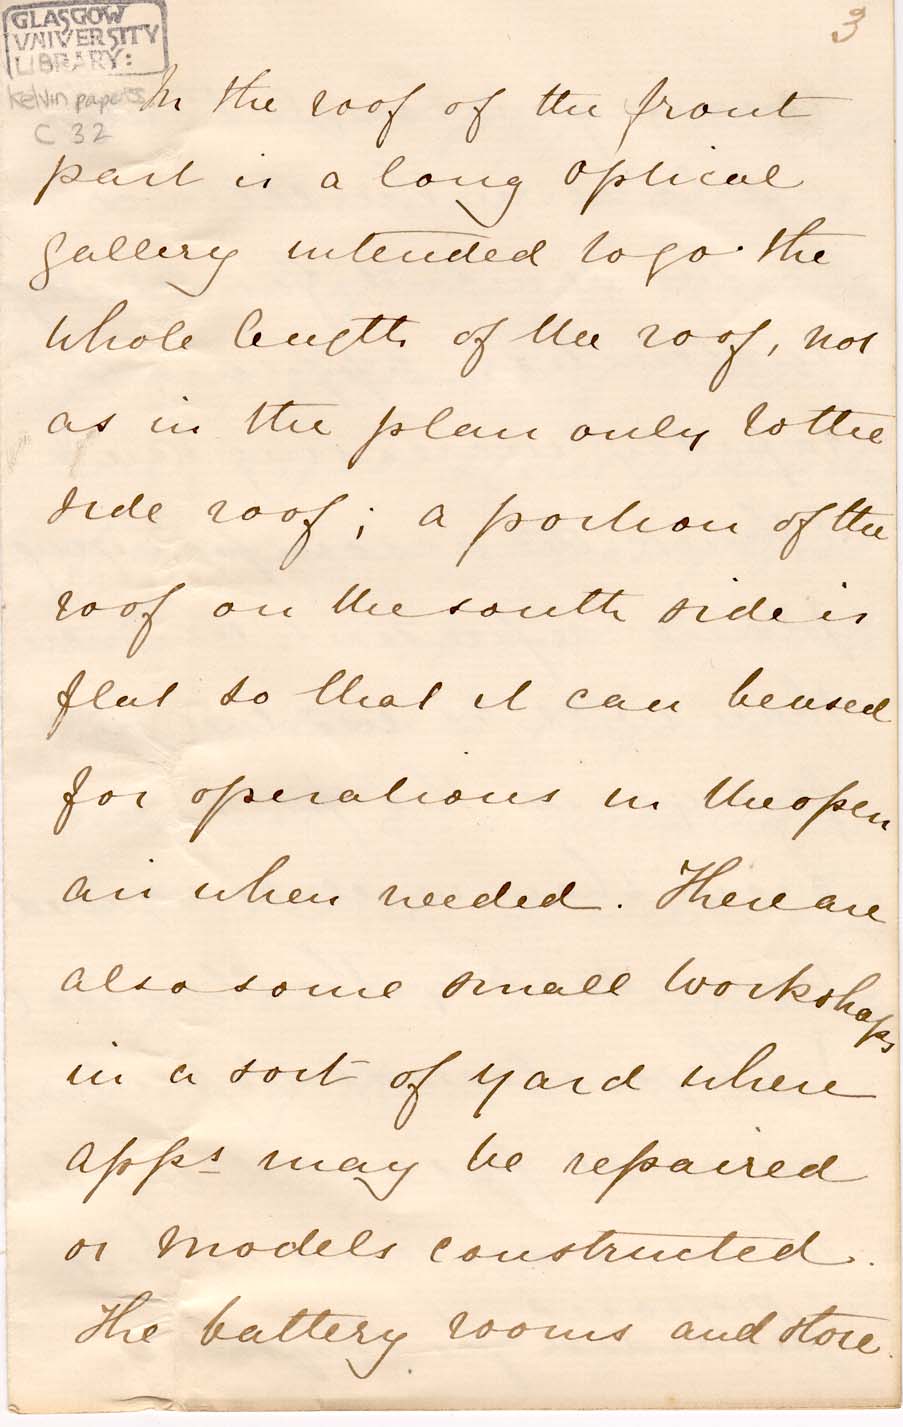 GLASGOW
UNIVERSITY
LIBRARY:
Kelvin papers
C 32
3
In the roof of the front
part is a long optical
gallery intended to go the
whole length of the roof, not
as in the plan only to the
side roof; a portion of the
roof on the south side is
flat so that it can be used
for operations in the open
air when needed. There are
also some small workshops
in a sort of yard where
apps may be repaired
or models constructed.
The battery rooms and store